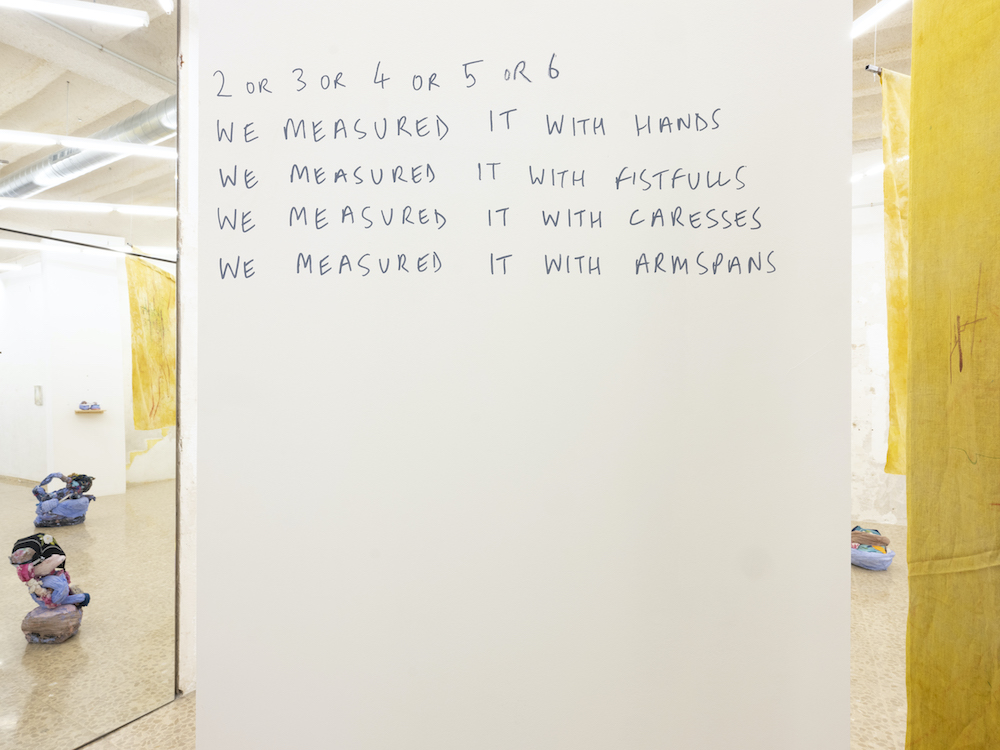 2 OR 3 OR 4 OR 5 OR 6
WE MEASURED IT WITH HANDS
WE MEASURED IT WITH FISTFULLS
WE MEASURED IT WITH CARESSES
WE MEASURED IT WITH ARMSPANS